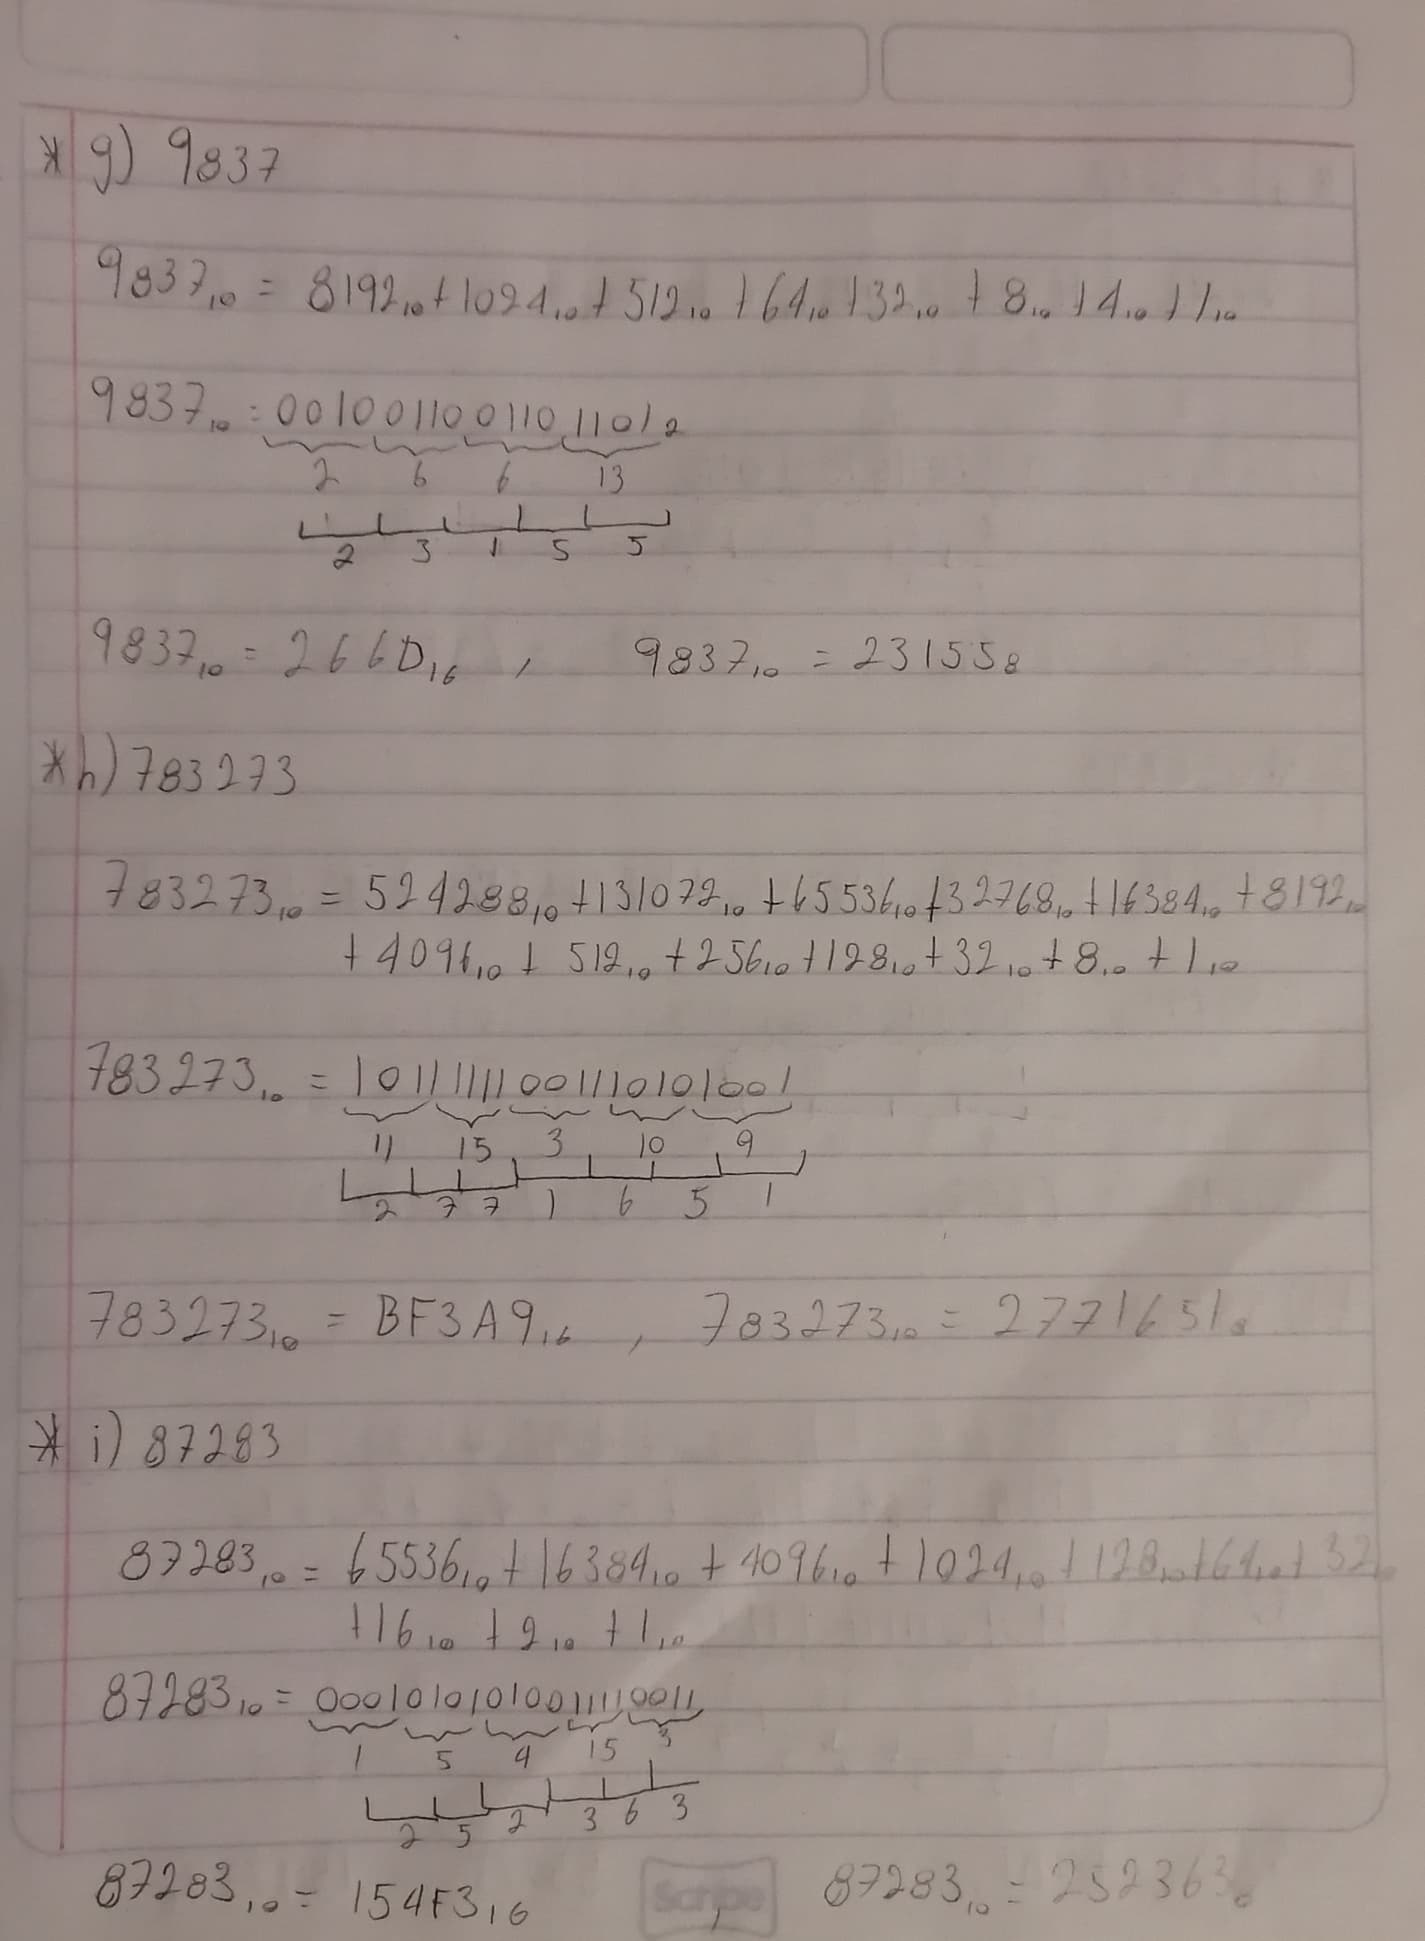 * g) 9837
9837₁₀ = 8192₁₀ + 1024₁₀ + 512₁₀ + 64₁₀ + 32₁₀ + 8₁₀ + 4₁₀ + 1₁₀
9837₁₀ = 0010011001101101₂
2 6 6 13
2 3 1 5 5
9837₁₀ = 266D₁₆ , 9837₁₀ = 23155₈
* h) 783273
783273₁₀ = 524288₁₀ + 131072₁₀ + 65536₁₀ + 32768₁₀ + 16384₁₀ + 8192₁₀
+ 4096₁₀ + 512₁₀ + 256₁₀ + 128₁₀ + 32₁₀ + 8₁₀ + 1₁₀
783273₁₀ = 10111111001110101001
11 15 3 10 9
2 7 7 1 6 5 1
783273₁₀ = BF3A9₁₆ , 783273₁₀ = 2771651₈
* i) 87283
87283₁₀ = 65536₁₀ + 16384₁₀ + 4096₁₀ + 1024₁₀ + 128₁₀ + 64₁₀ + 32₁₀
+ 16₁₀ + 2₁₀ + 1₁₀
87283₁₀ = 00010101010011110011
1 5 4 15 3
2 5 2 3 6 3
87283₁₀ = 154F3₁₆ , 87283₁₀ = 252363₈
Scribe